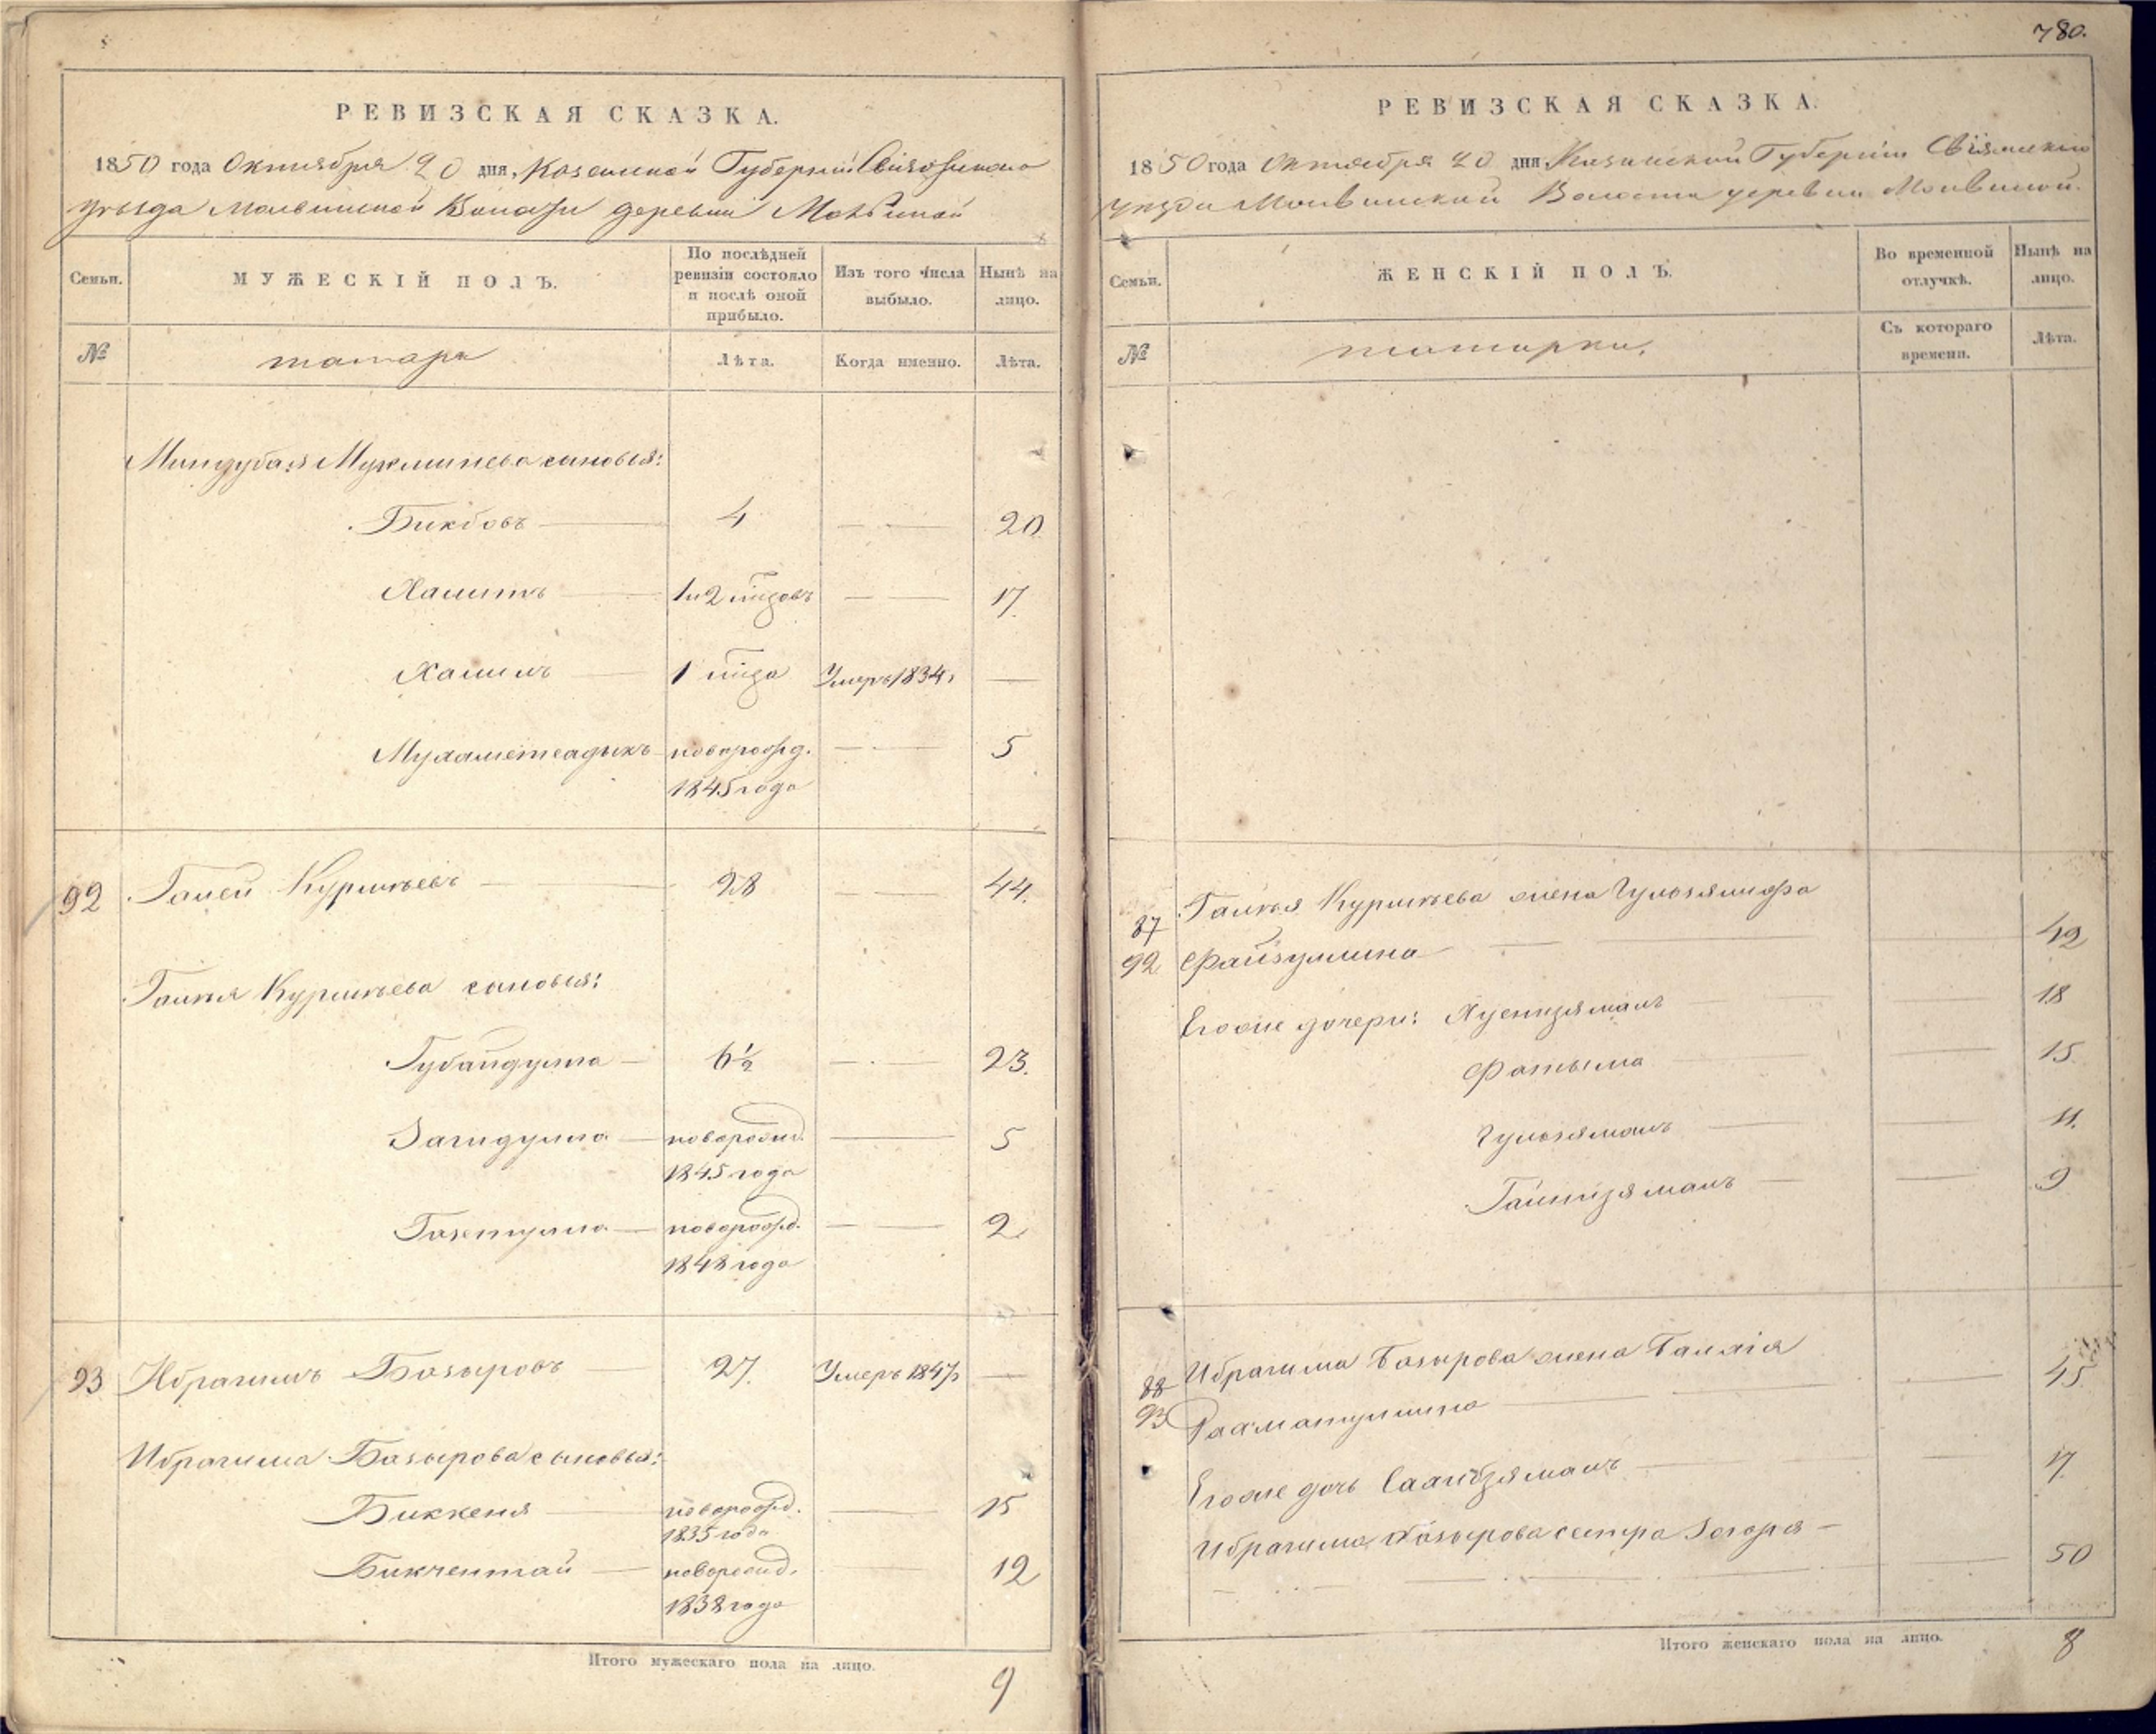 РЕВИЗСКАЯ СКАЗКА.
1850 года Октября 20 дня, Казанской Губернии Свіяжскаго
уѣзда Молвинской Волости деревни Молвиной
Семьи.
МУЖЕСКІЙ ПОЛЪ.
По послѣдней
ревизіи состояло
и послѣ оной
прибыло.
Изъ того числа
выбыло.
Нынѣ на
лицо.
№
татара
Лѣта.
Когда именно.
Лѣта.
сыновья:
Бикбовъ 4 20
Хамитъ 17.
Халилъ 1 Умеръ 1834г —
Мухаметсадыкъ новорожд. 5
1845 года
92 Галей Курмѣевъ 28 44.
Галѣя Курмѣева сыновья:
Губайдулла 6½ 23.
Загидулла новорожд. 5
1845 года
новорожд. 2
1848 года
93 Ибрагимъ Базыровъ 27. Умеръ 1847г —
Ибрагима Базырова сыновья:
Биккеня новорожд. 15
1835 года
Бикчентай новорожд. 12
1838 года
Итого мужескаго пола на лицо.
9
780.
РЕВИЗСКАЯ СКАЗКА.
1850 года Октября 20 дня Казанской Губерніи Свіяжскаго
уѣзда Молвинской Волости деревни Молвиной.
Семьи.
ЖЕНСКІЙ ПОЛЪ.
Во временной
отлучкѣ.
Нынѣ на
лицо.
№
татарки,
Съ котораго
времени.
Лѣта.
87 Галѣя Курмѣева жена
92 Файзуллина 42
Егоже дочери: 18
Фатыма 15
Гульзяманъ 11.
9
88 Ибрагима Базырова жена
93 Рахматуллина 45
Егоже дочь 17.
Ибрагима Базырова сестра
50
Итого женскаго пола на лицо. 8